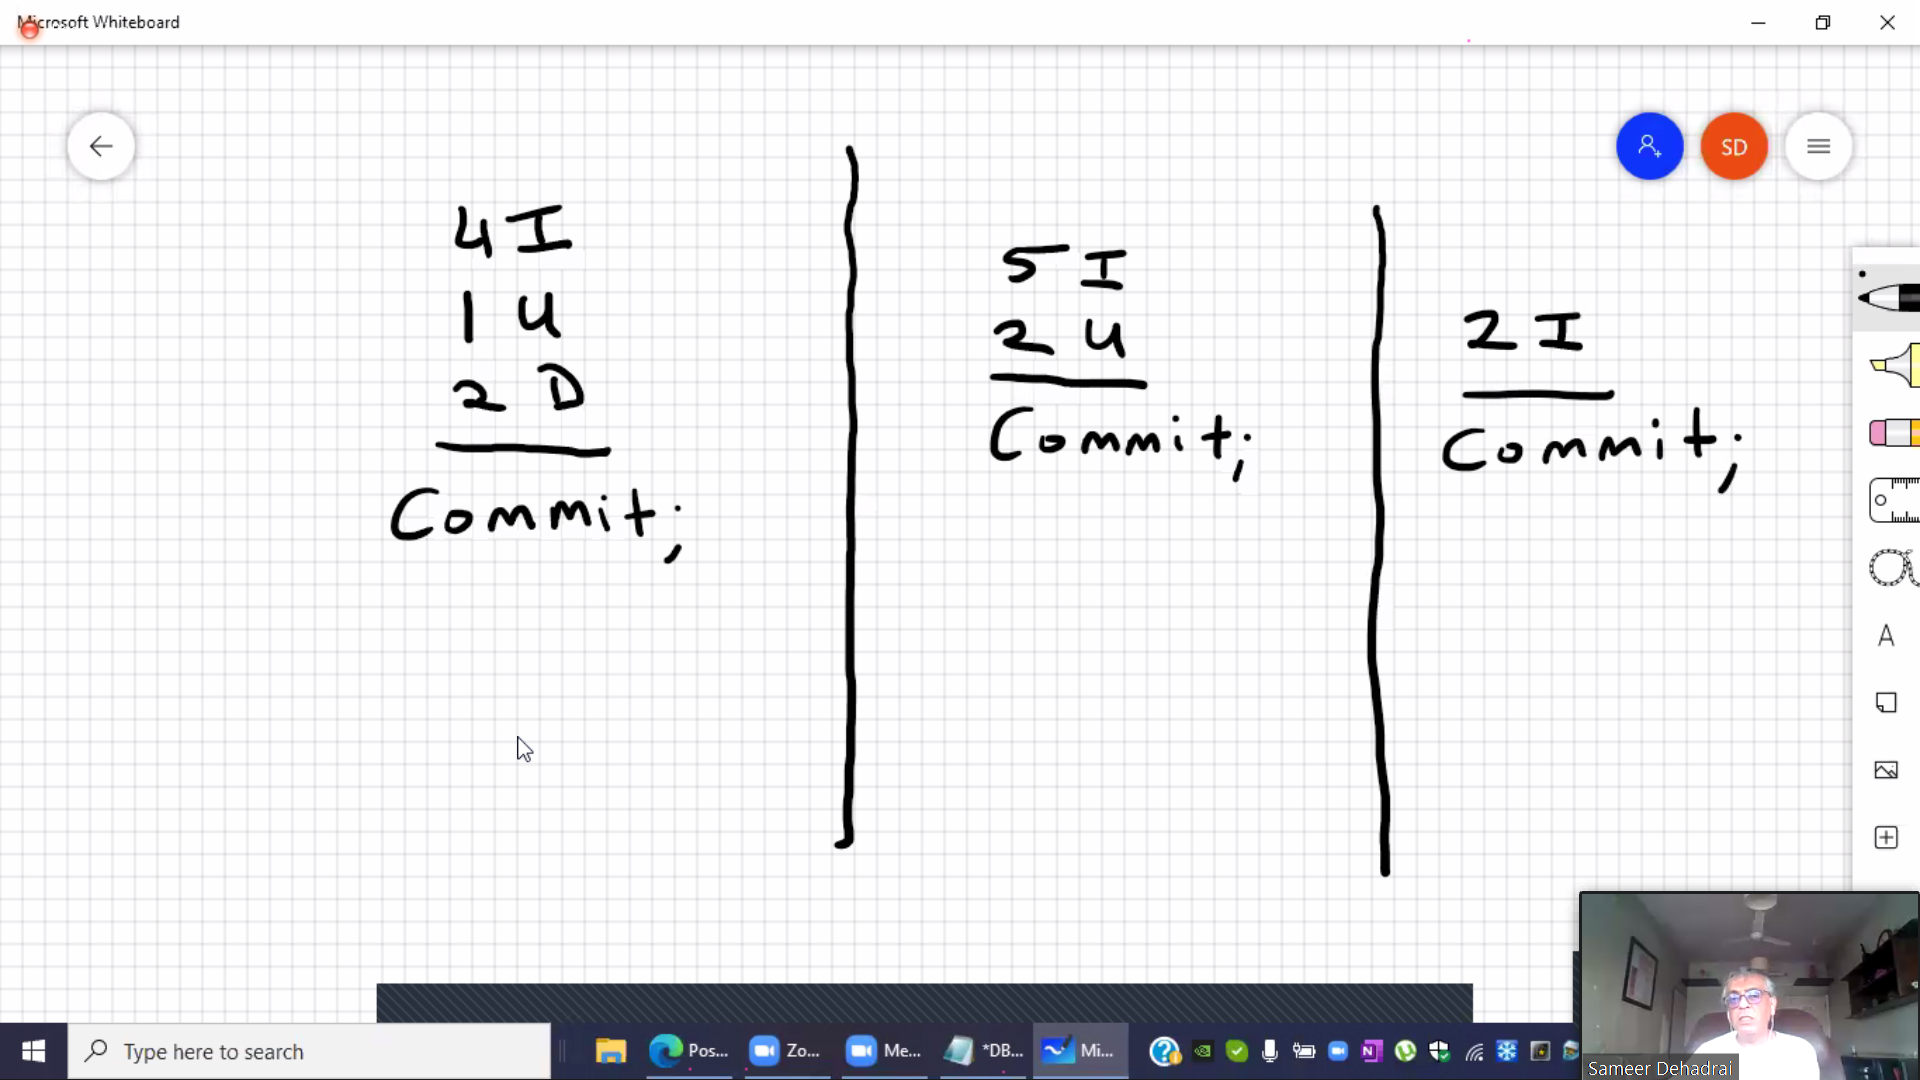 Microsoft Whiteboard
SD
4 I
1 U
2 D
Commit;
5 I
2 U
Commit;
2 I
Commit;
A
Type here to search
Pos...
Zo...
Me...
*DB...
Mi...
Sameer Dehadrai